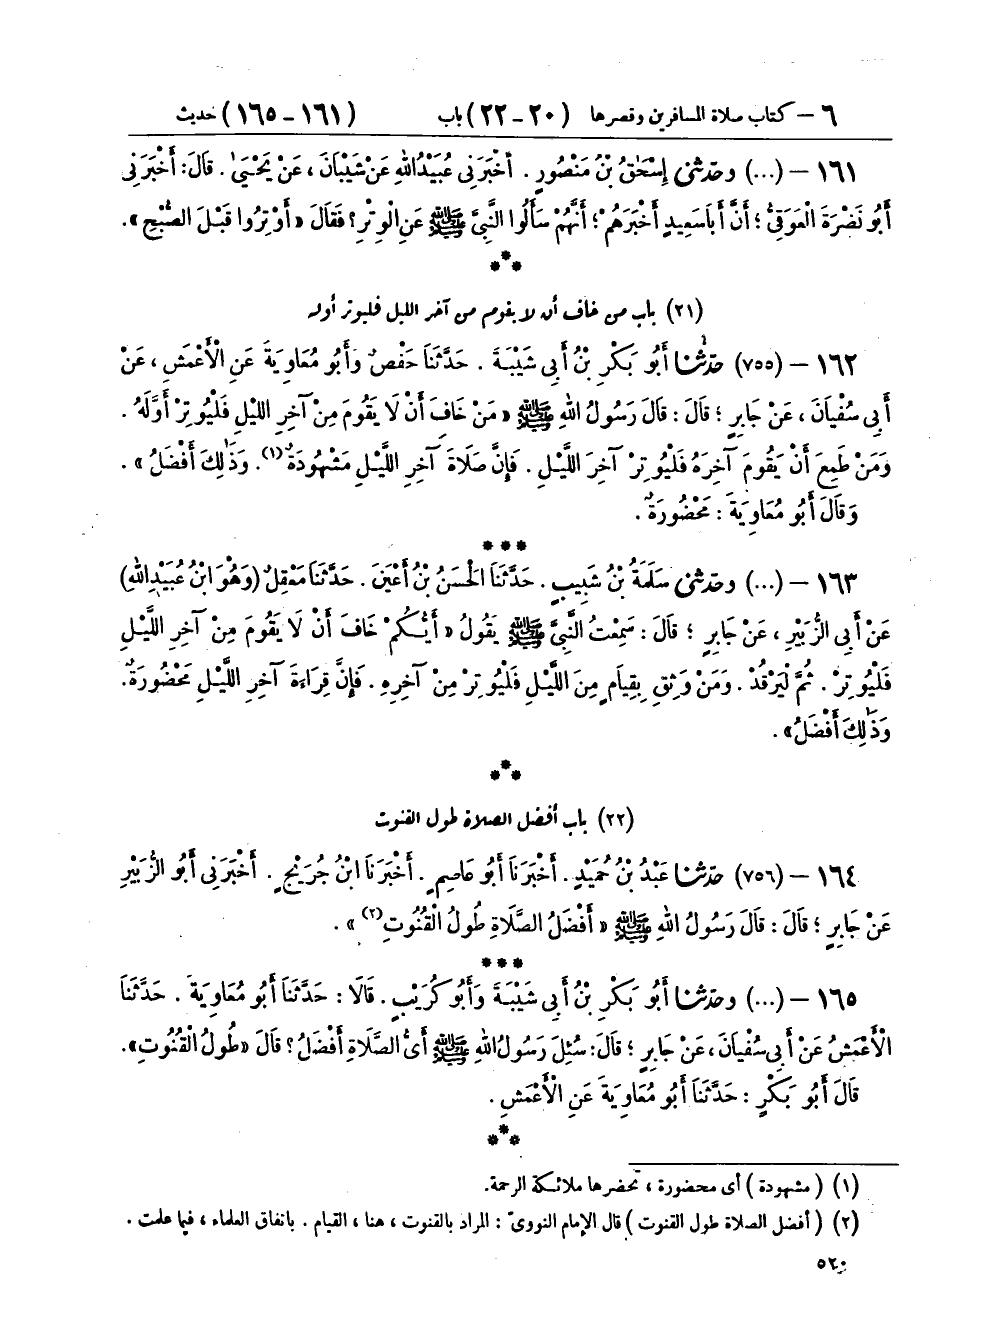 ٦ – كتاب صلاة المسافرين وقصرها (٢٠–٢٢) باب (١٦١–١٦٥) حديث
١٦١ – (...) وحَدَّثَنِي إِسْحَقُ بْنُ مَنْصُورٍ. أَخْبَرَنِي عُبَيْدُ اللهِ عَنْ شَيْبَانَ، عَنْ يَحْيَىٰ. قَالَ: أَخْبَرَنِي
أَبُو نَضْرَةَ الْعَوَقِيُّ؛ أَنَّ أَبَا سَعِيدٍ أَخْبَرَهُمْ؛ أَنَّهُمْ سَأَلُوا النَّبِيَّ ﷺ عَنِ الْوِتْرِ؟ فَقَالَ «أَوْتِرُوا قَبْلَ الصُّبْحِ».
(٢١) باب من خاف أن لا يقوم من آخر الليل فليوتر أوله
١٦٢ – (٧٥٥) حَدَّثَنَا أَبُو بَكْرِ بْنُ أَبِي شَيْبَةَ. حَدَّثَنَا حَفْصٌ وَأَبُو مُعَاوِيَةَ عَنِ الْأَعْمَشِ، عَنْ
أَبِي سُفْيَانَ، عَنْ جَابِرٍ؛ قَالَ: قَالَ رَسُولُ اللهِ ﷺ «مَنْ خَافَ أَنْ لَا يَقُومَ مِنْ آخِرِ اللَّيْلِ فَلْيُوتِرْ أَوَّلَهُ.
وَمَنْ طَمِعَ أَنْ يَقُومَ آخِرَهُ فَلْيُوتِرْ آخِرَ اللَّيْلِ. فَإِنَّ صَلَاةَ آخِرِ اللَّيْلِ مَشْهُودَةٌ(١). وَذَٰلِكَ أَفْضَلُ».
وَقَالَ أَبُو مُعَاوِيَةَ: مَحْضُورَةٌ.
١٦٣ – (...) وحَدَّثَنِي سَلَمَةُ بْنُ شَبِيبٍ. حَدَّثَنَا الْحَسَنُ بْنُ أَعْيَنَ. حَدَّثَنَا مَعْقِلٌ (وَهُوَ ابْنُ عُبَيْدِ اللهِ)
عَنْ أَبِي الزُّبَيْرِ، عَنْ جَابِرٍ؛ قَالَ: سَمِعْتُ النَّبِيَّ ﷺ يَقُولُ «أَيُّكُمْ خَافَ أَنْ لَا يَقُومَ مِنْ آخِرِ اللَّيْلِ
فَلْيُوتِرْ. ثُمَّ لْيَرْقُدْ. وَمَنْ وَثِقَ بِقِيَامٍ مِنَ اللَّيْلِ فَلْيُوتِرْ مِنْ آخِرِهِ. فَإِنَّ قِرَاءَةَ آخِرِ اللَّيْلِ مَحْضُورَةٌ.
وَذَٰلِكَ أَفْضَلُ».
(٢٢) باب أفضل الصلاة طول القنوت
١٦٤ – (٧٥٦) حَدَّثَنَا عَبْدُ بْنُ حُمَيْدٍ. أَخْبَرَنَا أَبُو عَاصِمٍ. أَخْبَرَنَا ابْنُ جُرَيْجٍ. أَخْبَرَنِي أَبُو الزُّبَيْرِ
عَنْ جَابِرٍ؛ قَالَ: قَالَ رَسُولُ اللهِ ﷺ «أَفْضَلُ الصَّلَاةِ طُولُ الْقُنُوتِ(٢)».
١٦٥ – (...) وحَدَّثَنَا أَبُو بَكْرِ بْنُ أَبِي شَيْبَةَ وَأَبُو كُرَيْبٍ. قَالَا: حَدَّثَنَا أَبُو مُعَاوِيَةَ. حَدَّثَنَا
الْأَعْمَشُ عَنْ أَبِي سُفْيَانَ، عَنْ جَابِرٍ؛ قَالَ: سُئِلَ رَسُولُ اللهِ ﷺ أَيُّ الصَّلَاةِ أَفْضَلُ؟ قَالَ «طُولُ الْقُنُوتِ».
قَالَ أَبُو بَكْرٍ: حَدَّثَنَا أَبُو مُعَاوِيَةَ عَنِ الْأَعْمَشِ.
(١) (مشهودة) أى محضورة، تحضرها ملائكة الرحمة.
(٢) (أفضل الصلاة طول القنوت) قال الإمام النووىّ: المراد بالقنوت، هنا، القيام. باتفاق العلماء، فيما علمت.
٥٢٠